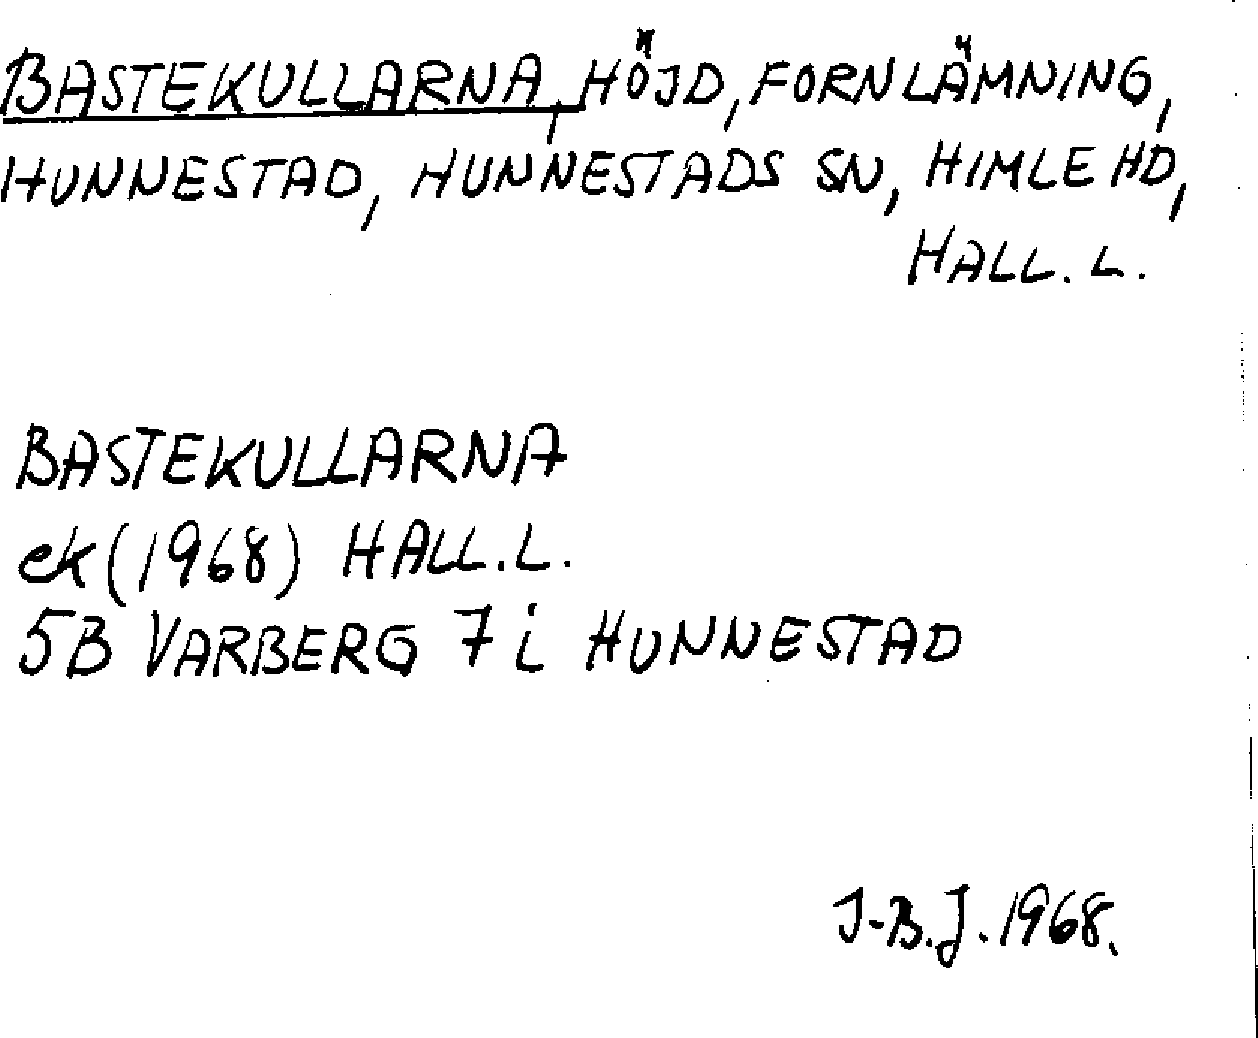 BASTEKULLARNA, HÖJD, FORNLÄMNING,
HUNNESTAD, HUNNESTADS SN, HIMLE HD,
HALL. L.
BASTEKULLARNA
ek (1968) HALL. L.
5B VARBERG 7i HUNNESTAD
J-B.J. 1968.